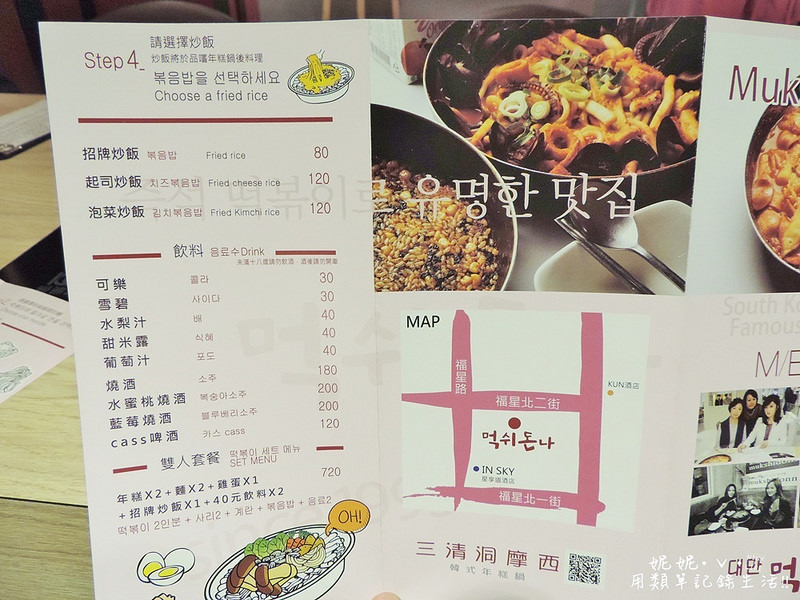 Step 4_
請選擇炒飯
炒飯將於品嚐年糕鍋後料理
볶음밥을 선택하세요
Choose a fried rice
招牌炒飯 볶음밥 Fried rice 80
起司炒飯 치즈볶음밥 Fried cheese rice 120
泡菜炒飯 김치볶음밥 Fried Kimchi rice 120
飲料 음료수Drink
未滿十八歲請勿飲酒，酒後請勿開車
可樂 콜라 30
雪碧 사이다 30
水梨汁 배 40
甜米露 식혜 40
葡萄汁 포도 40
燒酒 소주 180
水蜜桃燒酒 복숭아소주 200
藍莓燒酒 블루베리소주 200
cass啤酒 카스 cass 120
雙人套餐 떡볶이 세트 메뉴
SET MENU
720
年糕X2+麵X2+雞蛋X1
+招牌炒飯X1+40元飲料X2
떡볶이 2인분 + 사리2 + 계란 + 볶음밥 + 음료2
OH!
즉석 떡볶이로 유명한 맛집
MAP
福星路
KUN酒店
福星北二街
먹쉬돈나
IN SKY
星享道酒店
福星北一街
三清洞摩西
韓式年糕鍋
Muk
South Ko
Famous
M/E
대만 먹
妮妮
用類單記錄生活